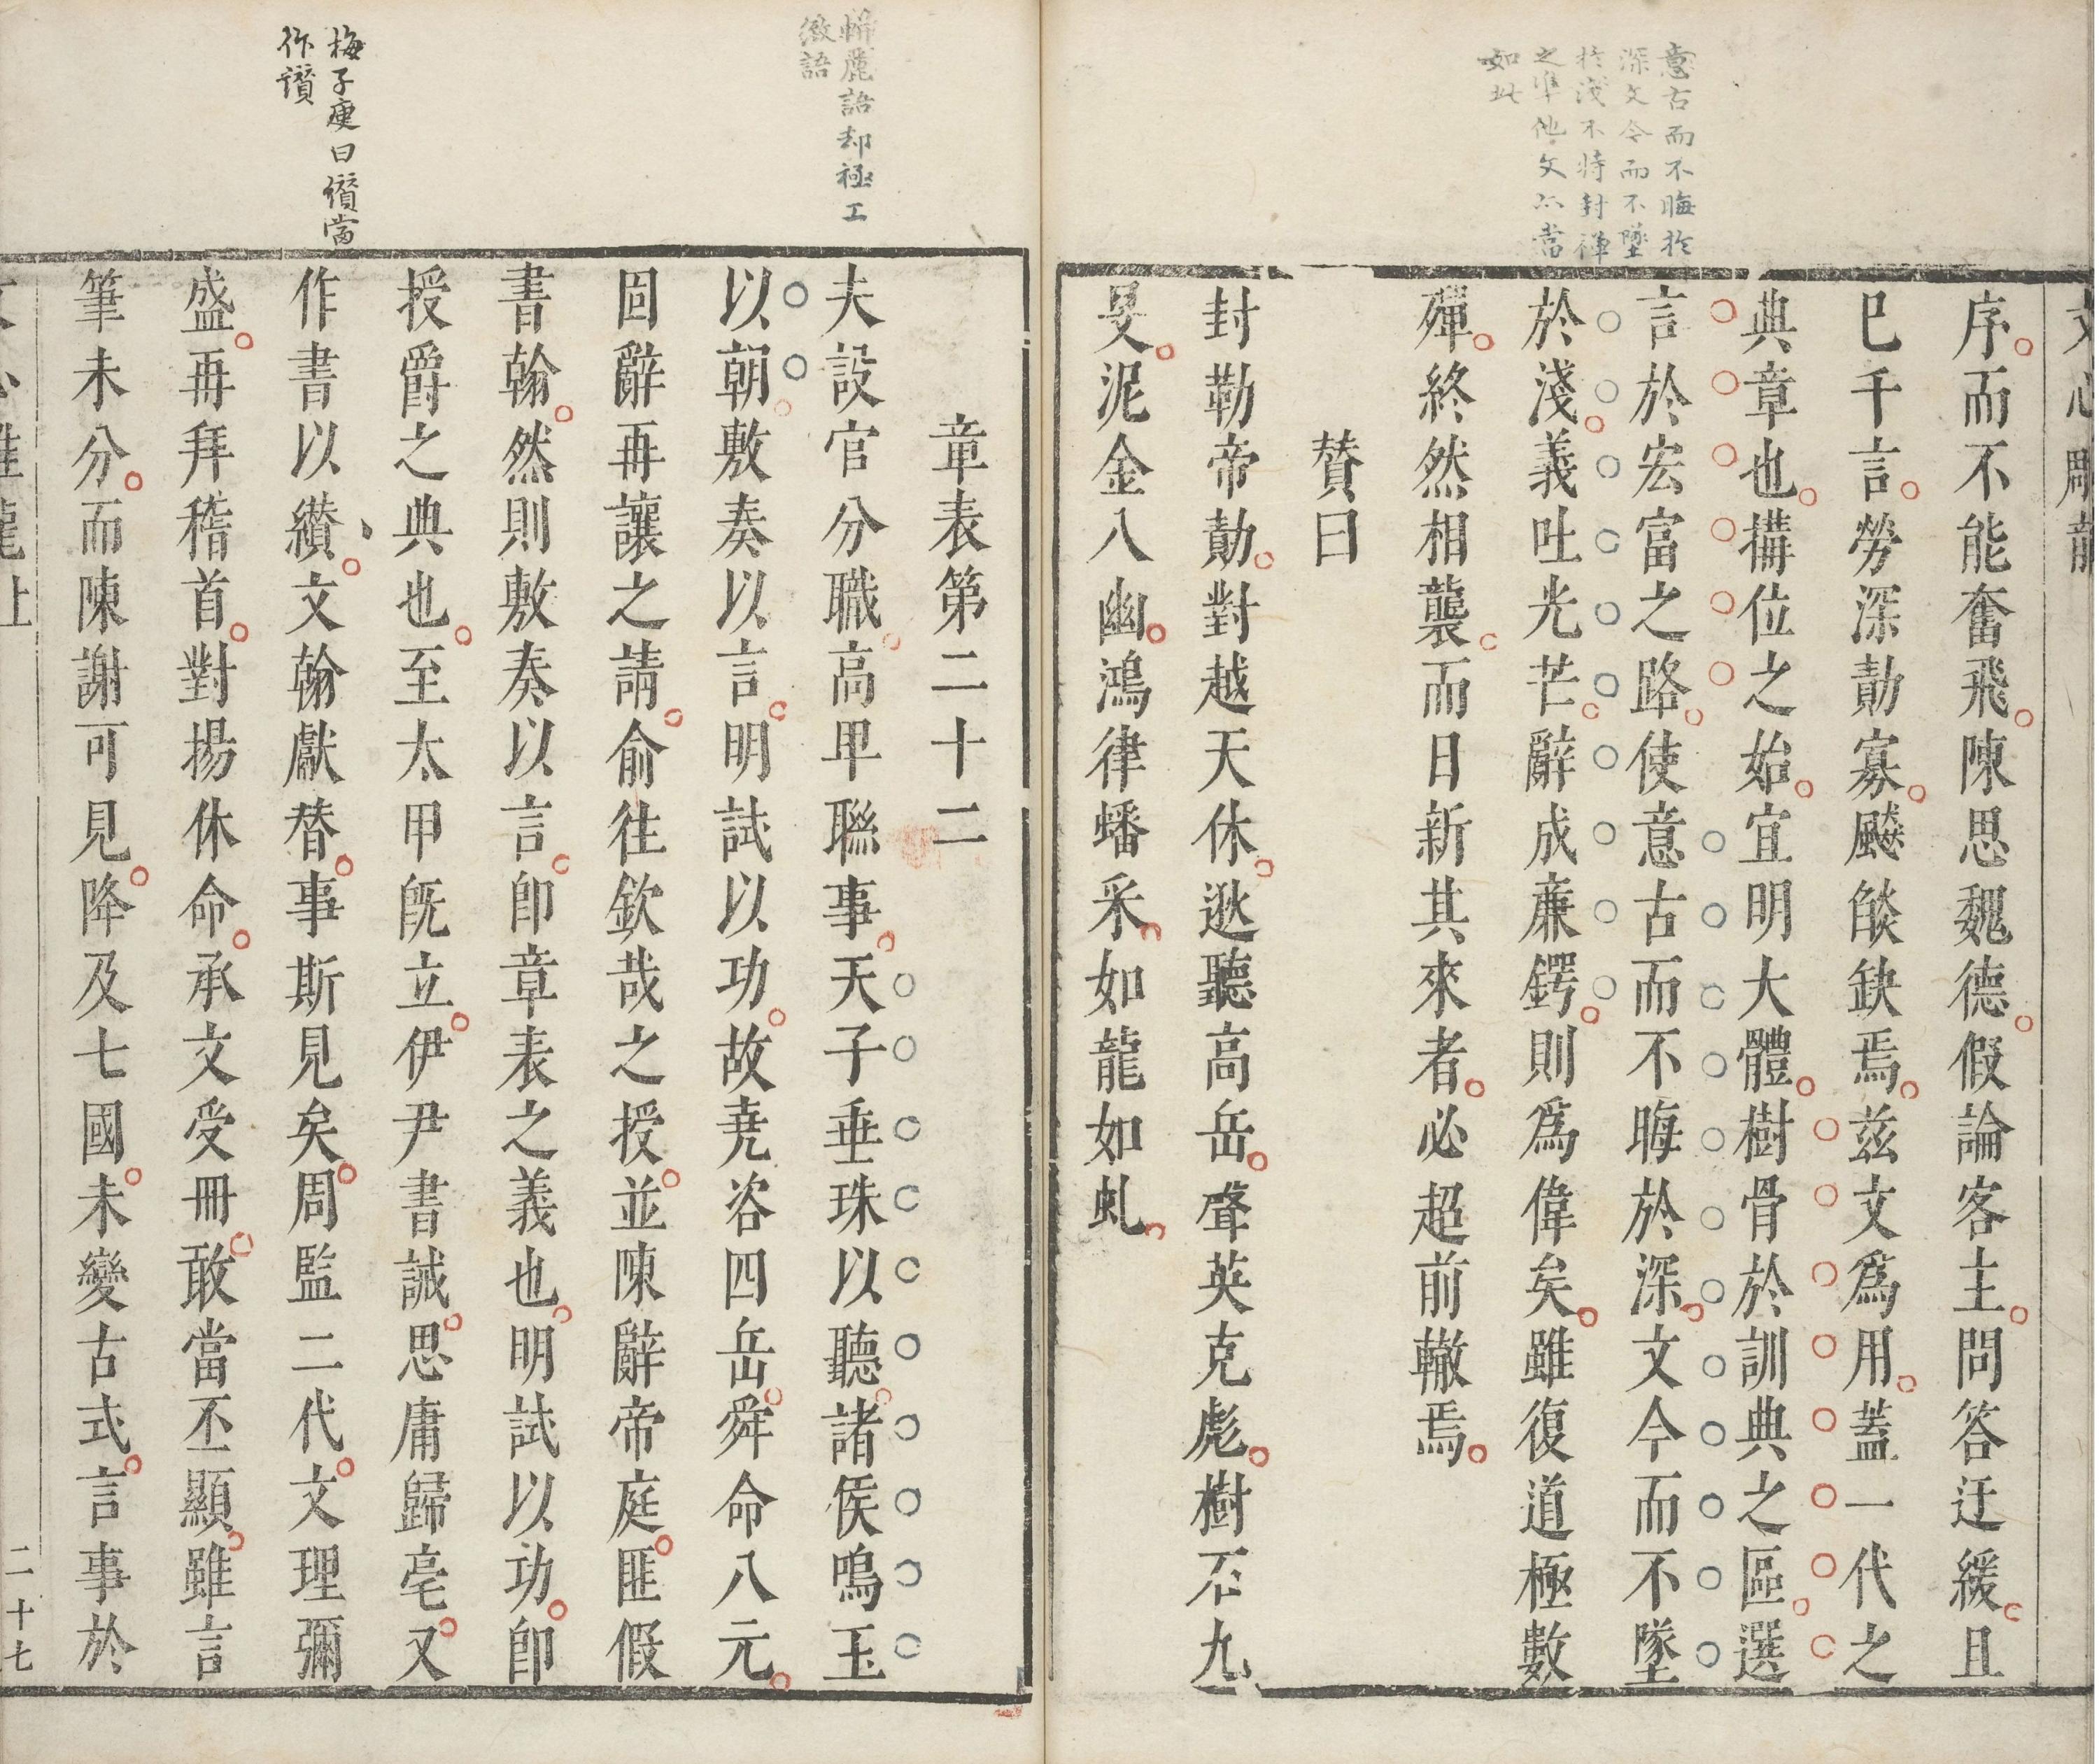 文心雕龍
意古而不晦於
深文今而不墜
於淺不特封禪
之準他文亦當
如此
序而不能奮飛陳思魏德假論客主問答迂緩且
巳千言勞深勣寡飈燄缺焉茲文爲用蓋一代之
典章也搆位之始宜明大體樹骨於訓典之區選
言於宏富之路使意古而不晦於深文今而不墜
於淺義吐光芒辭成廉鍔則爲偉矣雖復道極數
殫終然相襲而日新其來者必超前轍焉
贊曰
封勒帝勣對越天休逖聽高岳聲英克彪樹石九
旻泥金八幽鴻律蟠采如龍如虬
駢麗語却極工
緻語
章表第二十二
夫設官分職高卑聯事天子垂珠以聽諸侯鳴玉
以朝敷奏以言明試以功故堯咨四岳舜命八元
固辭再讓之請俞往欽哉之授並陳辭帝庭匪假
書翰然則敷奏以言卽章表之義也明試以功卽
授爵之典也至太甲旣立伊尹書誡思庸歸亳又
梅子庾曰儧當
作讚
作書以纘文翰獻替事斯見矣周監二代文理彌
盛再拜稽首對揚休命承文受冊敢當丕顯雖言
筆未分而陳謝可見降及七國未變古式言事於
文心雕龍上
二十七